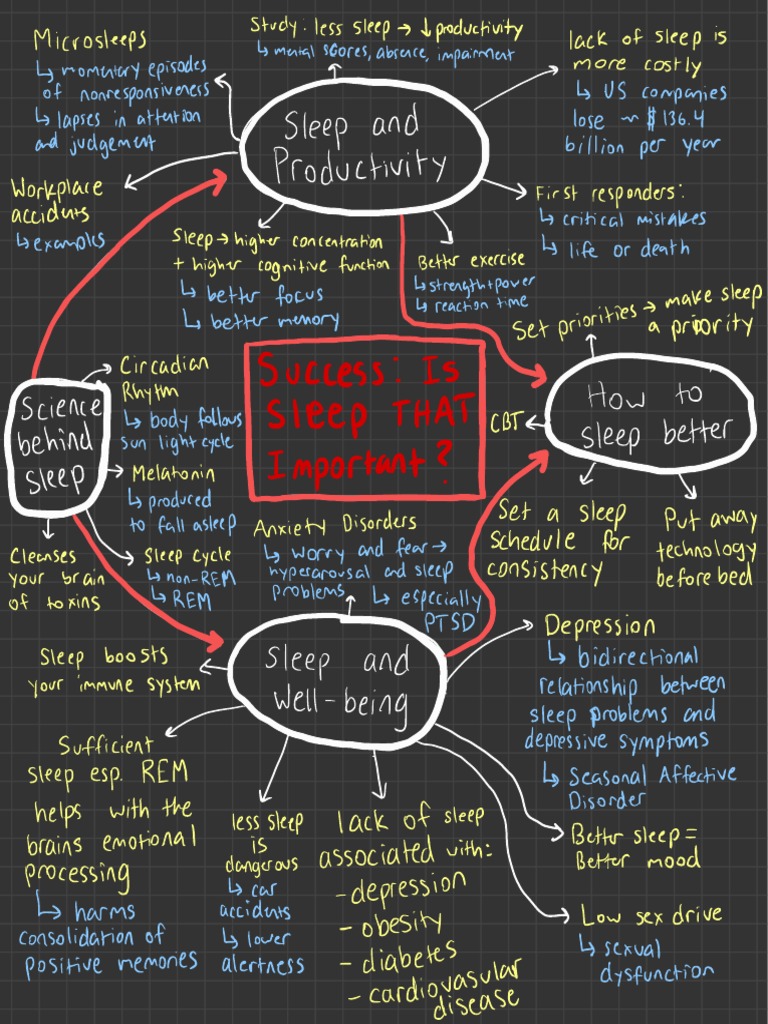 Microsleeps
↳ momentary episodes
of nonresponsiveness
↳ lapses in attention
and judgement
Study: less sleep → ↓ productivity
↳ mental scores, absence, impairment
lack of sleep is
more costly
↳ US companies
lose ~ $136.4
billion per year
Sleep and
Productivity
Workplace
accidents
↳ examples
First responders:
↳ critical mistakes
↳ life or death
Sleep → higher concentration
+ higher cognitive function
↳ better focus
↳ better memory
Better exercise
↳ strength+power
↳ reaction time
Set priorities → make sleep
a priority
Success: Is
Sleep THAT
Important?
How to
sleep better
CBT
Set a sleep
schedule for
consistency
Put away
technology
before bed
Science
behind
sleep
Circadian
Rhythm
↳ body follows
sun light cycle
Melatonin
↳ produced
to fall asleep
Sleep cycle
↳ non-REM
↳ REM
Cleanses
your brain
of toxins
Anxiety Disorders
↳ worry and fear →
hyperarousal and sleep
problems
↳ especially
PTSD
Sleep and
well-being
Sleep boosts
your immune system
Sufficient
sleep esp. REM
helps with the
brains emotional
processing
↳ harms
consolidation of
positive memories
less sleep
is
dangerous
↳ car
accidents
↳ lower
alertness
lack of sleep
associated with:
- depression
- obesity
- diabetes
- cardiovascular
disease
Depression
↳ bidirectional
relationship between
sleep problems and
depressive symptoms
↳ Seasonal Affective
Disorder
Better sleep =
Better mood
Low sex drive
↳ sexual
dysfunction